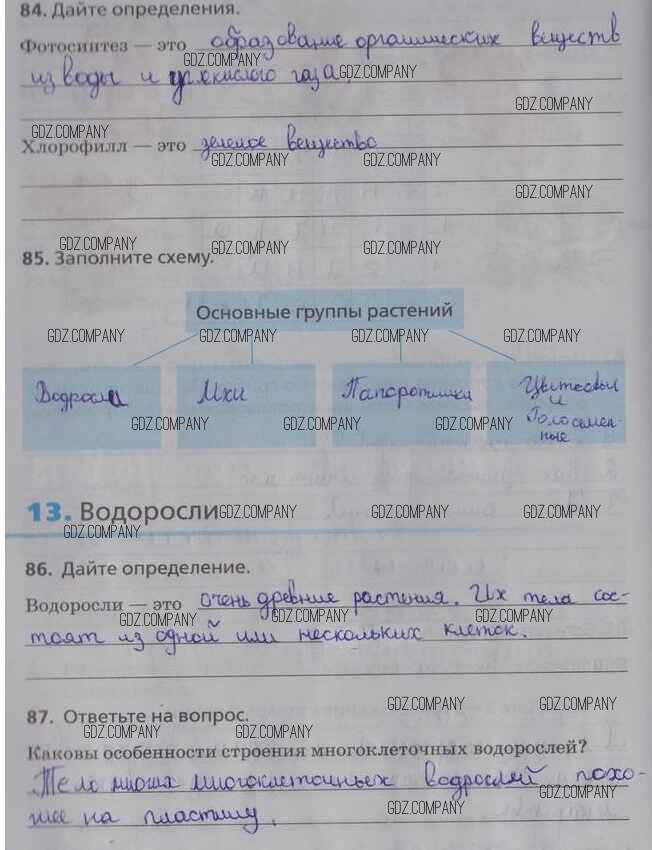 84. Дайте определения.
Фотосинтез — это образование органических веществ
GDZ.COMPANY
из воды и углекислого газа.
GDZ.COMPANY
GDZ.COMPANY
GDZ.COMPANY
Хлорофилл — это зеленое вещество
GDZ.COMPANY GDZ.COMPANY
GDZ.COMPANY
GDZ.COMPANY GDZ.COMPANY GDZ.COMPANY
85. Заполните схему.
Основные группы растений
GDZ.COMPANY GDZ.COMPANY GDZ.COMPANY GDZ.COMPANY
Водоросли Мхи Папоротники Цветковые
и
Голосемен-
ные
GDZ.COMPANY GDZ.COMPANY GDZ.COMPANY GDZ.COMPANY
13. Водоросли GDZ.COMPANY GDZ.COMPANY GDZ.COMPANY
GDZ.COMPANY
86. Дайте определение.
Водоросли — это очень древние растения. Их тела сос-
GDZ.COMPANY GDZ.COMPANY GDZ.COMPANY
тоят из одной или нескольких клеток.
GDZ.COMPANY GDZ.COMPANY
87. Ответьте на вопрос.
GDZ.COMPANY GDZ.COMPANY GDZ.COMPANY
Каковы особенности строения многоклеточных водорослей?
Тело многих многоклеточных водрослей похо-
GDZ.COMPANY
жее на пластину.
GDZ.COMPANY GDZ.COMPANY